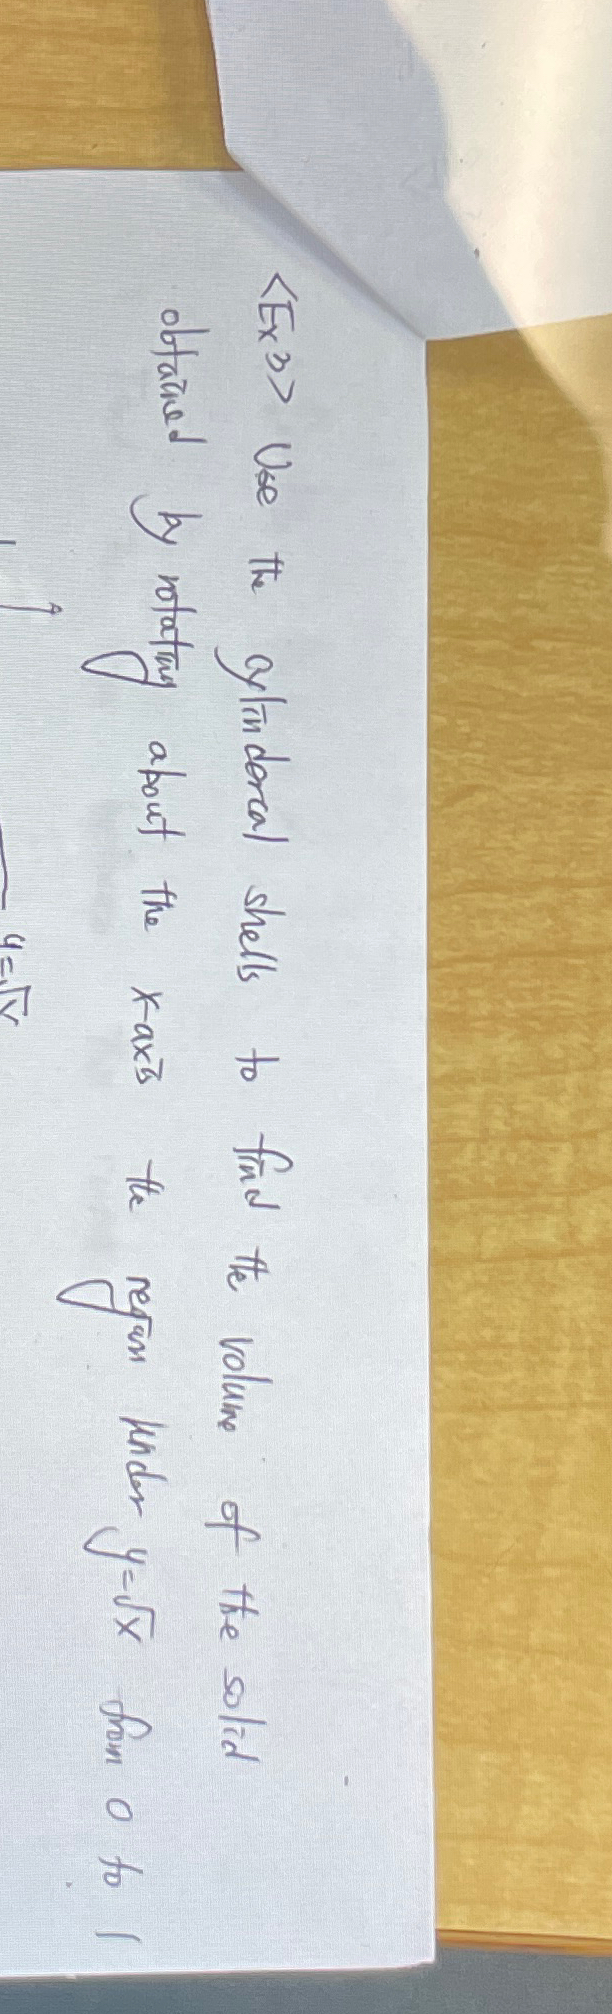 <Ex3> Use the cylindercal shells to find the volume of the solid
obtained by rotating about the x-axis the region under y=√x from 0 to 1
y=√x